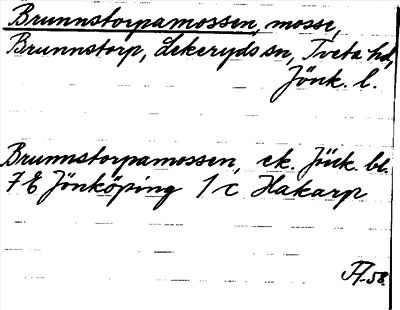 Brunnstorpamossen, mosse,
Brunnstorp, Lekeryds sn, Tveta hd,
Jönk. l.
Brunnstorpamossen, ek. Jönk. bl.
7 E Jönköping 1 c Hakarp
-58